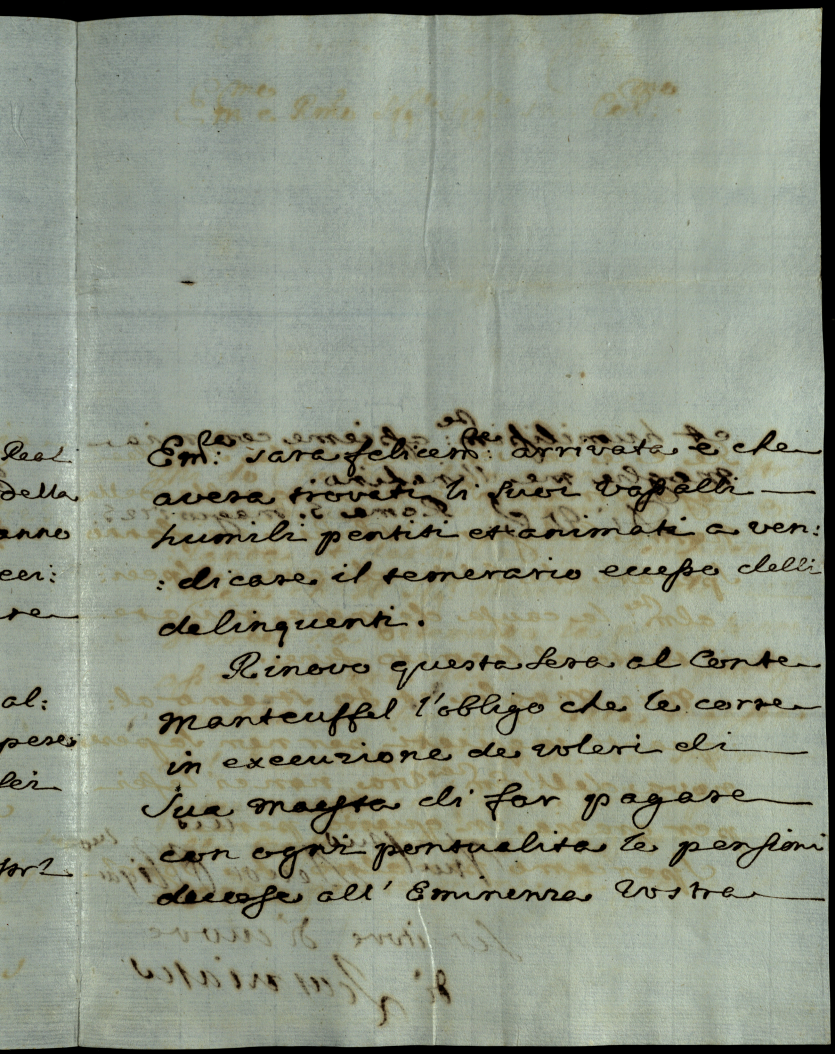 Real
della
anno
cci:
re
al:
pese
lei
Em:ᶻᵃ sara felicem:ᵗᵉ arrivata e che
avera trovati li suoi vassalli
humili pentiti et animati a ven:
:dicare il temerario ecesso delli
delinquenti.
Rinovo questa sera al Conte
Manteuffel l'obligo che le corre
in execuzione de voleri di
Sua Maesta di far pagare
con ogni pontualita le pensioni
decorse all' Eminenza Vostra